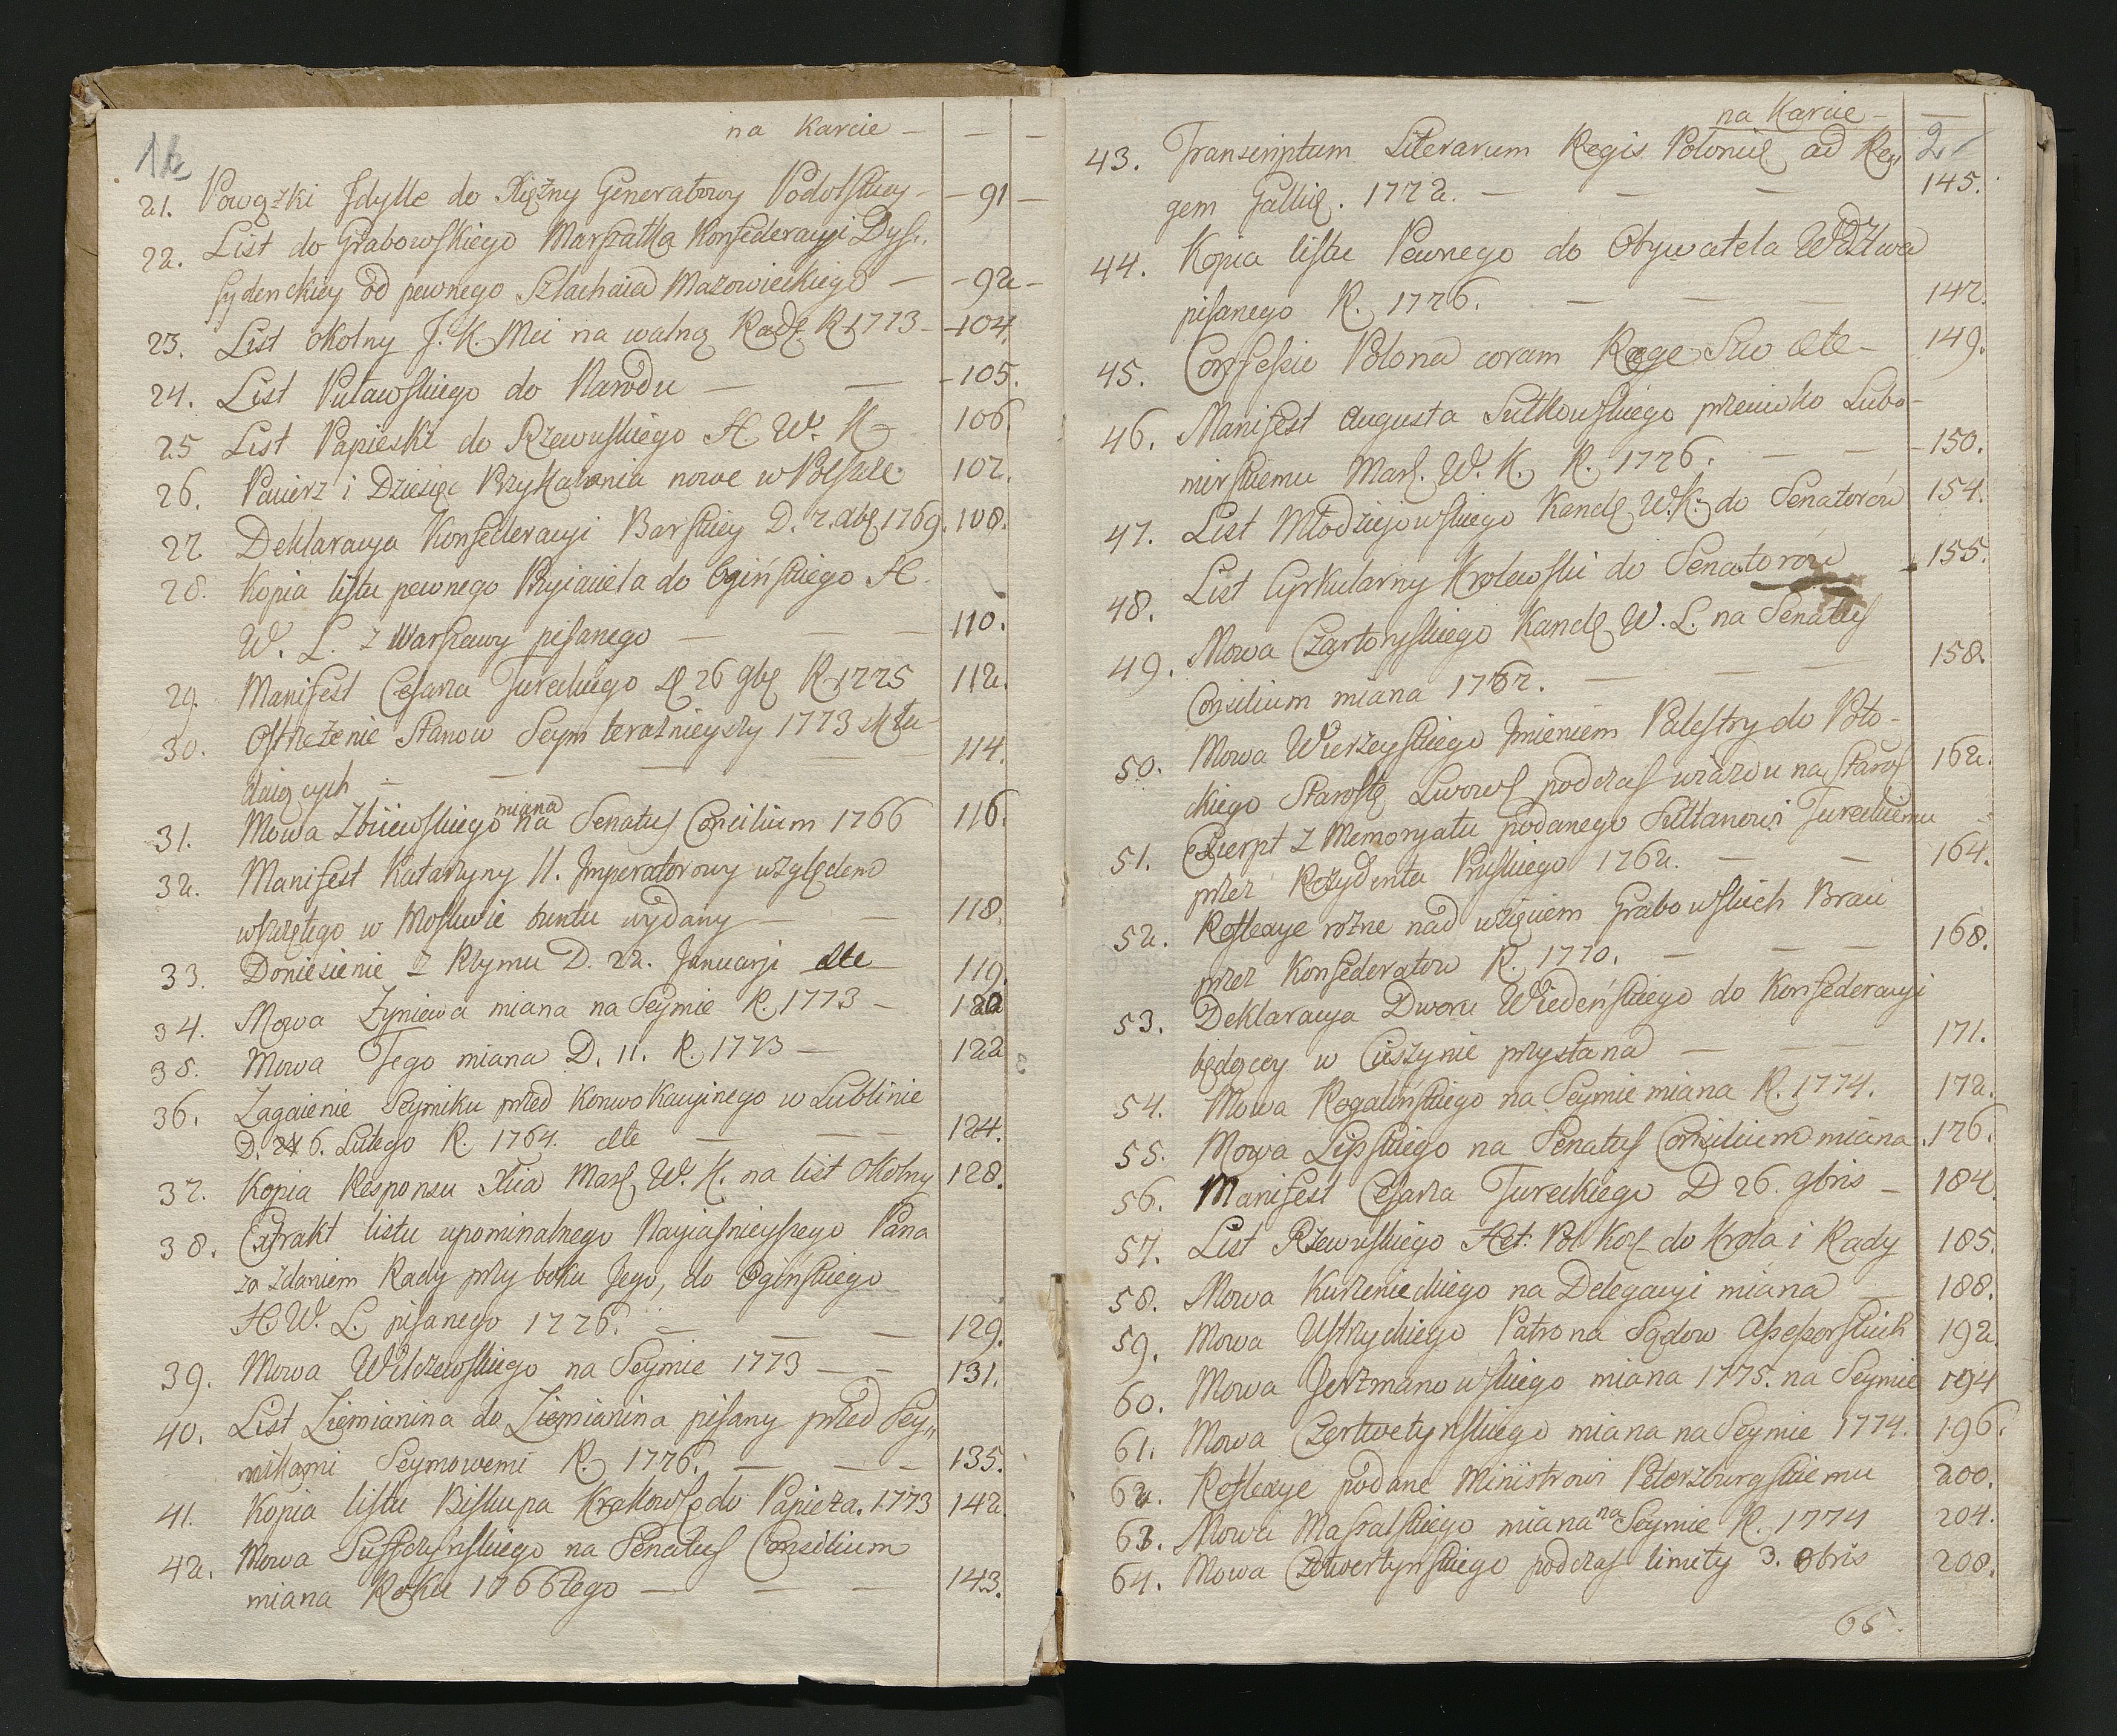 na Karcie –
21. Powązki Jdylle do Xiężny Generałowy Podolskiey – 91
22. List do Grabowskiego Marszałka Konfederacyi Dys„
sydenckiey od pewnego Szlachcica Mazowieckiego – 92
23. List okolny J. K. Mci na walną Radę R. 1773 – 104.
24. List Puławskiego do Narodu – 105.
25 List Papieski do Rzewuskiego H. W. K. 106
26. Pacierz i Dziesięc Przykazania nowe w Polszcze 107.
27 Deklaracya Konfederacyi Barskiey D. 7. Xbr. 1769. 108.
28. Kopia listu pewnego Przyiaciela do Ogińskiego H.
W. L. z Warszawy pisanego – 110.
29. Manifest Cesarza Tureckiego D 26 9br R. 1775 112.
30. Ostrzeżenie Stanow Seym teraznieyszy 1773 skła-
daiących – 114.
31. Mowa Zbiiewskiego miana na Senatus Concilium 1766 116.
32. Manifest Katarzyny II. Jmperatorowy względem
wszczętego w Moskwie buntu wydany – 118.
33. Doniesienie z Krymu D. 22. Januarji etc 119.
34. Mowa Zyniewa miana na Seymie R. 1773 – 120
35. Mowa Tego miana D. 11. R. 1773 – 122
36. Zagaienie Seymiku przed Konwokacyinego w Lublinie
D. 6. Lutego R. 1764. etc – 124.
37. Kopia Responsu Xcia Mars. W. K. na list okolny 128.
38. Extrakt listu upominalnego Nayiasnieyszego Pana
za zdaniem Rady przy boku Jego, do Oginskiego
H. W. L. pisanego 1776. – 129.
39. Mowa Wilczewskiego na Seymie 1773 – 131.
40. List Ziemianina do Ziemianina pisany przed Sey„
mikami Seymowemi R. 1776. – 135.
41. Kopia listu Biskupa Krakows. do Papieża. 1773 142
42. Mowa Suffczynskiego na Senatus Consilium
miana Roku 1766tego – 143.
na Karcie –
2
43. Transcriptum Literarum Regis Polonię ad Re„
gem Gallię. 1772. – 145.
44. Kopia listu Pewnego do Obywatela Wdztwa
pisanego R. 1776. – 147.
45. Confessio Polona coram Rege Suo etc – 149.
46. Manifest Augusta Sułkowskiego przeciwko Lubo-
mirskiemu Mars. W. K. R. 1776. – 150.
47. List Młodziejowskiego Kancl. W. K. do Senatorów 154.
48. List Cyrkularny Krolewski do Senatorów 155.
49. Mowa Czartoryskiego Kancl. W. L. na Senatus
Consilium miana 1767. – 158.
50. Mowa Wierzeyskiego Jmieniem Palestry do Poto-
ckiego Starostę Lwows. podczas wiazdu na Staros 162.
51. Excerpt z Memoryału podanego Sułtanowi Tureckiemu
przez Rezydenta Pruskiego 1762. – 164.
52. Reflexye rożne nad wzięciem Grabowskich Braci
przez Konfederatow R. 1770. – 168.
53. Deklaracya Dworu Wiedeńskiego do Konfederacyi
będącey w Cieszynie przysłana – 171.
54. Mowa Rogalińskiego na Seymie miana R. 1774. 172.
55. Mowa Lipskiego na Senatus Consilium miana. 176.
56. Manifest Cesarza Tureckiego D 26. 9bris – 184.
57. List Rzewuskiego Het: Pol. Kor. do Krola i Rady 185.
58. Mowa Kurzenieckiego na Delegacyi miana – 188.
59. Mowa Ustrzyckiego Patrona Sądow Assessorskich 192.
60. Mowa Jerzmanowskiego miana 1775. na Seymie 194
61. Mowa Czetwetynskiego miana na Seymie 1774. 196.
62. Reflexye podane Ministrowi Petorzburgskiemu 200.
63. Mowa Massalskiego miana na Seymie R. 1774 204.
64. Mowa Czetwertynskiego podczas limity 3. 8bris 208.
65.